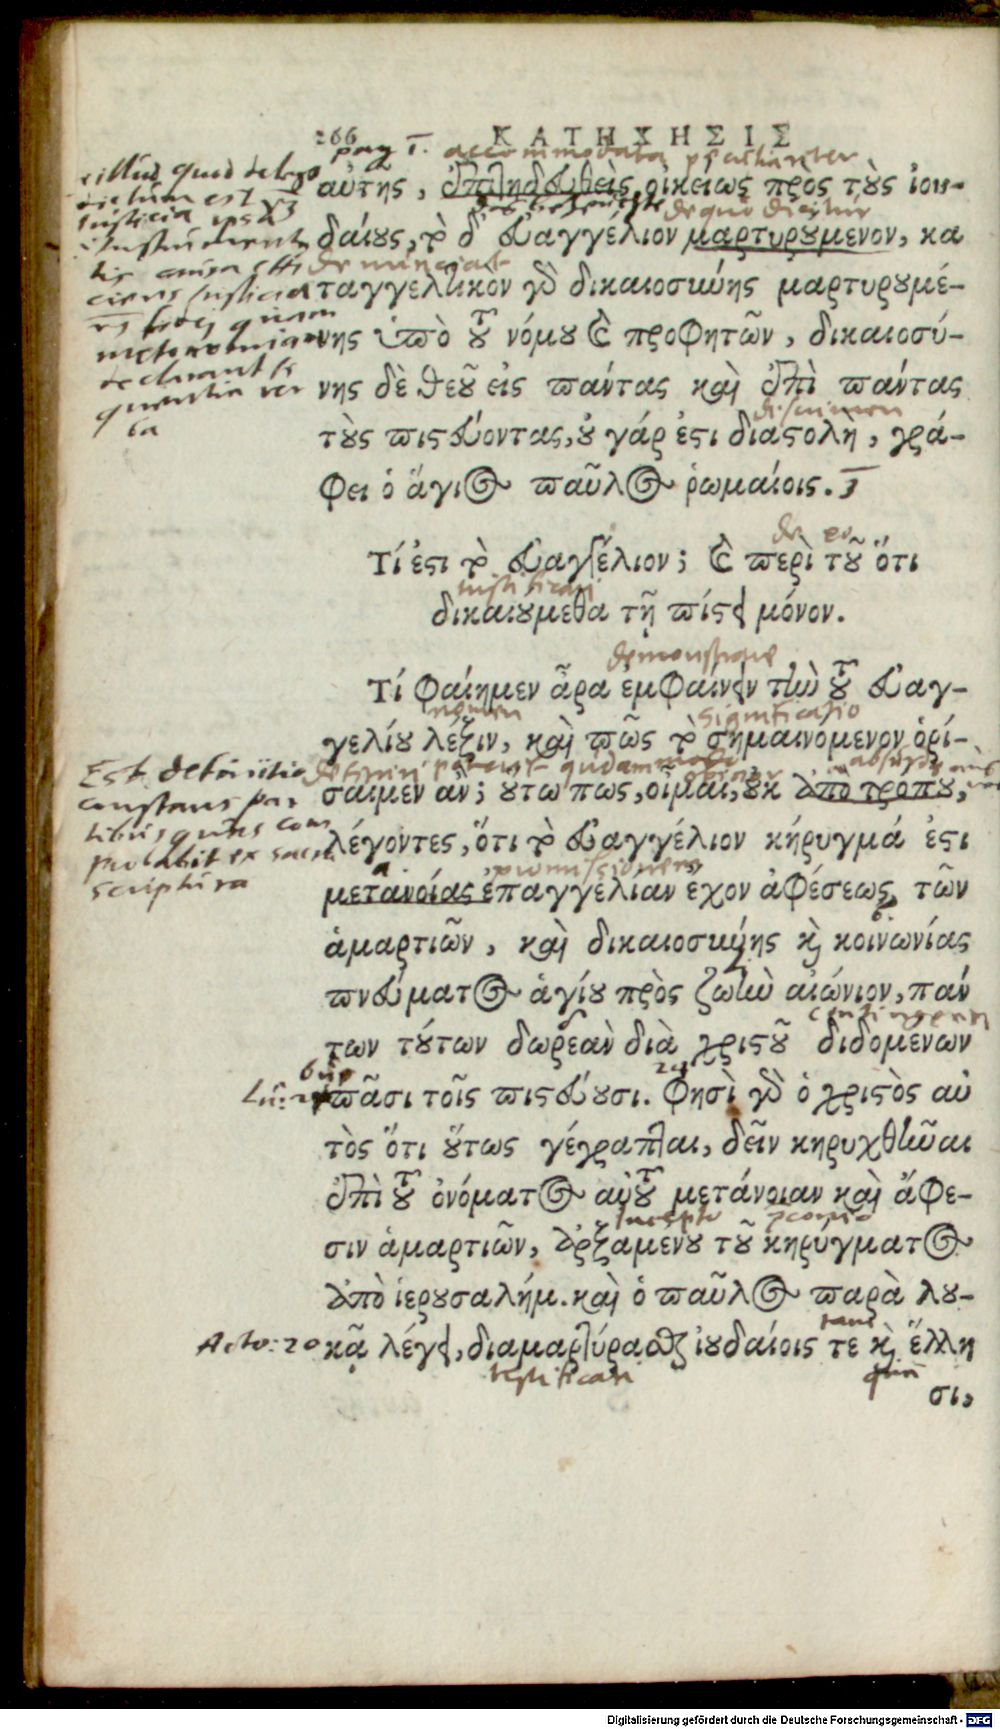 266 ΚΑΤΗΧΗΣΙΣ
accommodata peculiariter
αὐτῆς, ἐπιτηδευθεὶς οἰκείως πρὸς τοὺς ἰου-
de quo dicitur
δαίους, τὸ δ' εὐαγγέλιον μαρτυρούμενον, κα
ταγγελτικὸν γὰρ δικαιοσύνης μαρτυρουμέ-
νης ὑπὸ τοῦ νόμου καὶ προφητῶν, δικαιοσύ-
νης δὲ θεοῦ εἰς πάντας καὶ ἐπὶ πάντας
discrimen
τοὺς πιστεύοντας, οὐ γάρ ἐστι διαστολὴ, γρά-
φει ὁ ἅγιος παῦλος ῥωμαίοις. 3
Τί ἐστι τὸ εὐαγγέλιον; καὶ περὶ τοῦ ὅτι
iustificari
δικαιούμεθα τῇ πίστει μόνον.
demonstrare
Τί φαίημεν ἆρα ἐμφαίνειν τὴν τοῦ εὐαγ-
nomen significatio
γελίου λέξιν, καὶ πῶς τὸ σημαινόμενον ὁρί-
σαιμεν ἄν; οὕτω πως, οἶμαι, οὐκ ἀπὸ τρόπου,
λέγοντες, ὅτι τὸ εὐαγγέλιον κήρυγμά ἐστι
promissionem
μετανοίας ἐπαγγελίαν ἔχον ἀφέσεως τῶν
ἁμαρτιῶν, καὶ δικαιοσύνης καὶ κοινωνίας
πνεύματος ἁγίου πρὸς ζωὴν αἰώνιον, πάν
των τούτων δωρεὰν διὰ χριστοῦ διδομένων
πᾶσι τοῖς πιστεύουσι. Φησὶ γὰρ ὁ χριστὸς αὐ
τὸς ὅτι οὕτως γέγραπται, δεῖν κηρυχθῆναι
ἐπὶ τοῦ ὀνόματος αὐτοῦ μετάνοιαν καὶ ἄφε-
σιν ἁμαρτιῶν, ἀρξαμένου τοῦ κηρύγματος
ἀπὸ ἱερουσαλήμ. καὶ ὁ παῦλος παρὰ λου-
Acto: 20 κᾷ λέγει, διαμαρτύρασθαι ἰουδαίοις τε καὶ ἕλλη
testificari
σι,
Est definitio
constans par
tibus quas com
probabit ex sacra
scriptura
Digitalisierung gefördert durch die Deutsche Forschungsgemeinschaft - DFG